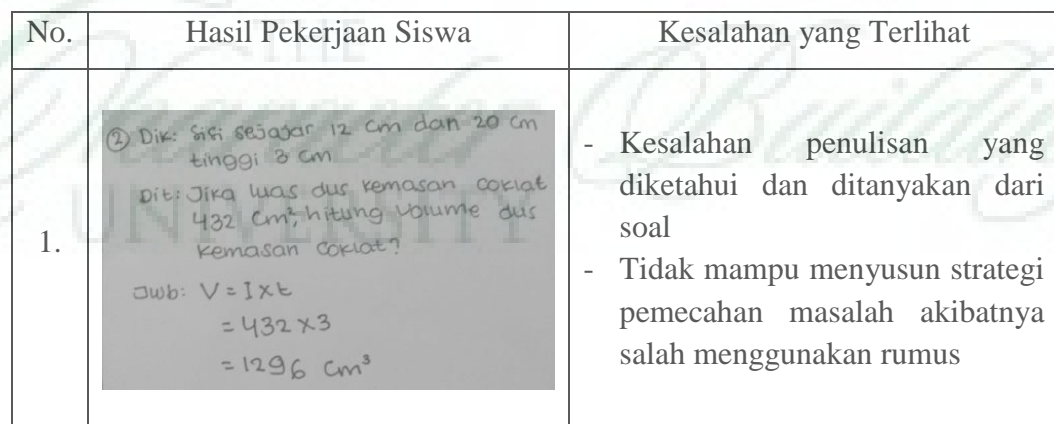 No. Hasil Pekerjaan Siswa Kesalahan yang Terlihat
1.
② Dik: Sisi sejajar 12 cm dan 20 cm
tinggi 3 cm
Dit: Jika luas dus kemasan coklat
432 cm², hitung volume dus
kemasan coklat?
Jwb: V = I x t
= 432 x 3
= 1296 cm³
- Kesalahan penulisan yang
diketahui dan ditanyakan dari
soal
- Tidak mampu menyusun strategi
pemecahan masalah akibatnya
salah menggunakan rumus
THE
UNIVERSITY